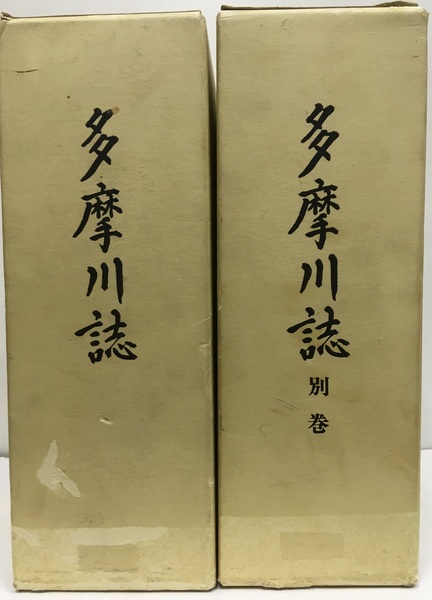 多摩川誌
多摩川誌
別巻